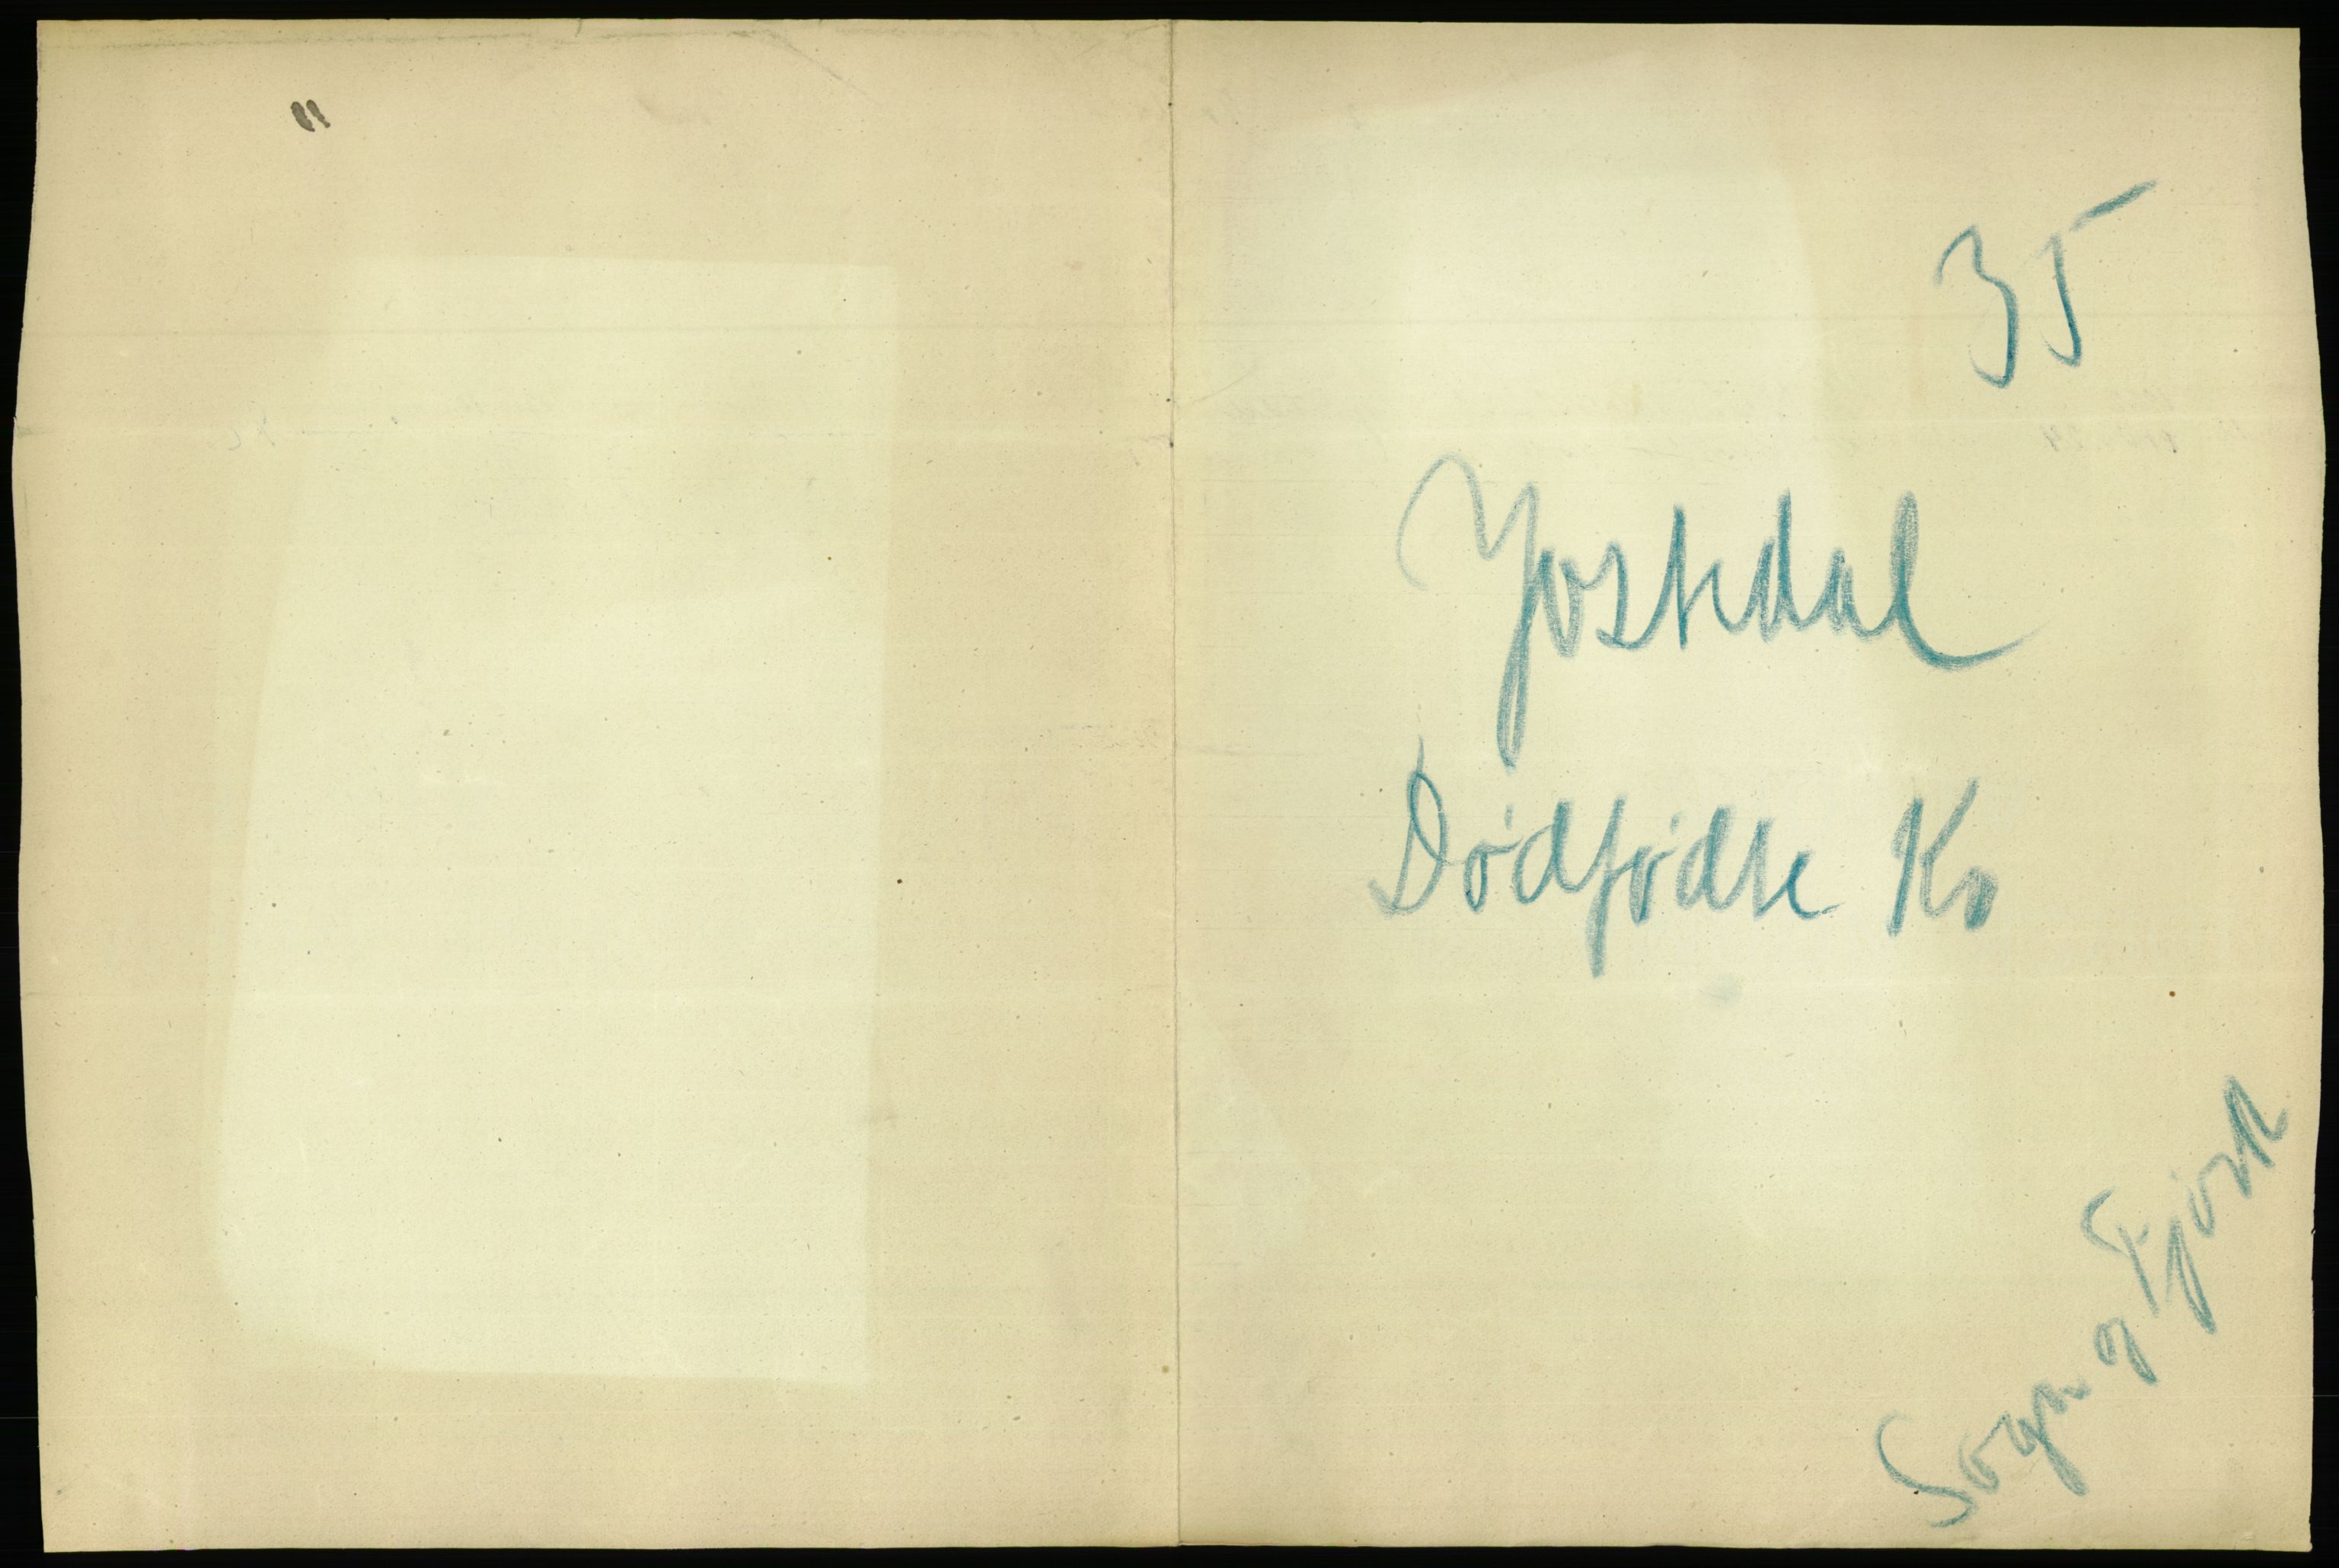 35
Jostedal
Dødfødte Kv
Sogn og Fjord